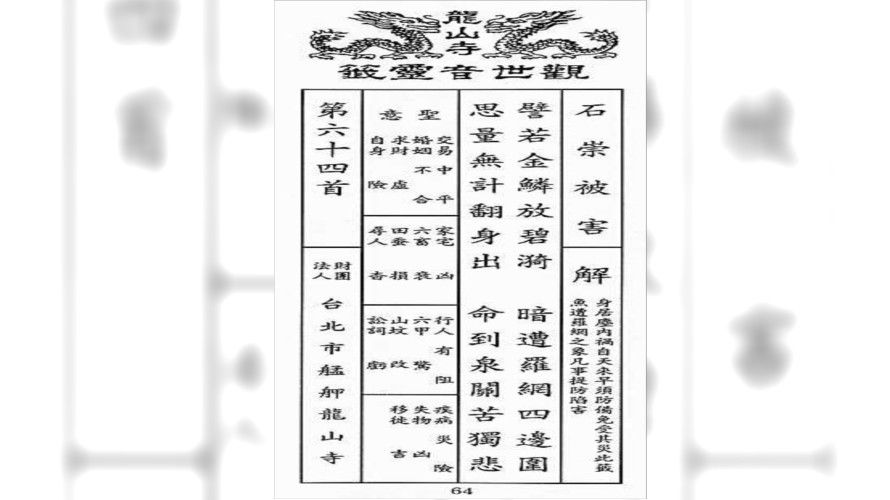 龍山寺
觀世音靈籤
石崇被害
解
身居塵內禍自天來早須防備免受其災此籤
魚遭羅網之象凡事提防陷害
譬若金鱗放碧漪 暗遭羅網四邊圍
思量無計翻身出 命到泉關苦獨悲
聖意
交易中平
婚姻不合
求財虛
自身險
家宅凶
六畜衰
田蚕損
尋人杳
行人有阻
六甲驚
山坟改
訟詞虧
疾病災險
失物凶
移徙吉
第六十四首
財團法人 台北市艋舺龍山寺
64